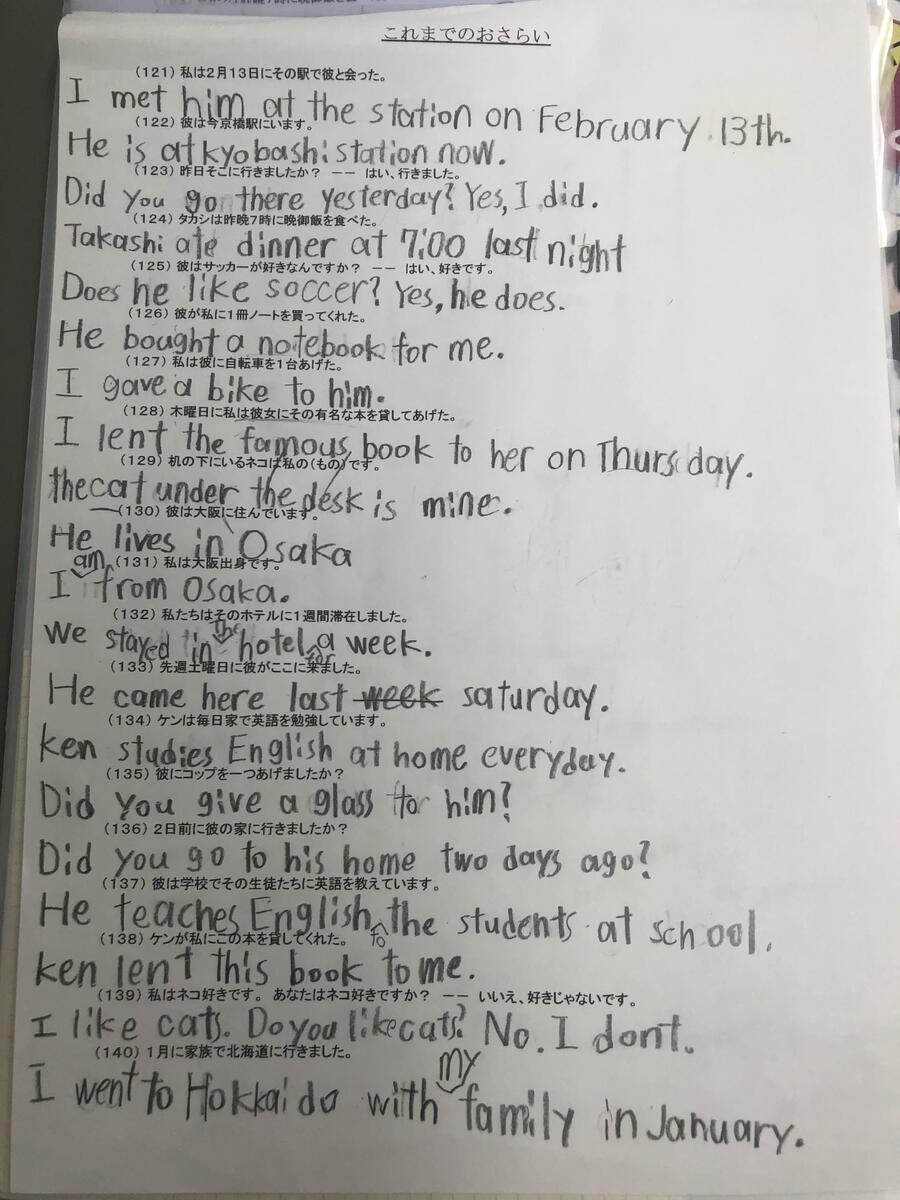 これまでのおさらい
(121) 私は2月13日にその駅で彼と会った。
I met him at the station on February 13th.
(122) 彼は今京橋駅にいます。
He is at kyobashi station now.
(123) 昨日そこに行きましたか? −− はい、行きました。
Did you go there yesterday? Yes, I did.
(124) タカシは昨晩7時に晩御飯を食べた。
Takashi ate dinner at 7:00 last night
(125) 彼はサッカーが好きなんですか? −− はい、好きです。
Does he like soccer? Yes, he does.
(126) 彼が私に1冊ノートを買ってくれた。
He bought a notebook for me.
(127) 私は彼に自転車を1台あげた。
I gave a bike to him.
(128) 木曜日に私は彼女にその有名な本を貸してあげた。
I lent the famous book to her on Thursday.
(129) 机の下にいるネコは私の(もの)です。
the cat under the desk is mine.
(130) 彼は大阪に住んでいます。
He lives in Osaka
(131) 私は大阪出身です。
I am from Osaka.
(132) 私たちはそのホテルに1週間滞在しました。
We stayed in the hotel for a week.
(133) 先週土曜日に彼がここに来ました。
He came here last week saturday.
(134) ケンは毎日家で英語を勉強しています。
ken studies English at home everyday.
(135) 彼にコップを一つあげましたか?
Did you give a glass for him?
(136) 2日前に彼の家に行きましたか?
Did you go to his home two days ago?
(137) 彼は学校でその生徒たちに英語を教えています。
He teaches English to the students at school.
(138) ケンが私にこの本を貸してくれた。
ken lent this book to me.
(139) 私はネコ好きです。あなたはネコ好きですか? −− いいえ、好きじゃないです。
I like cats. Do you like cats? No. I don't.
(140) 1月に家族で北海道に行きました。
I went to Hokkaido with my family in January.